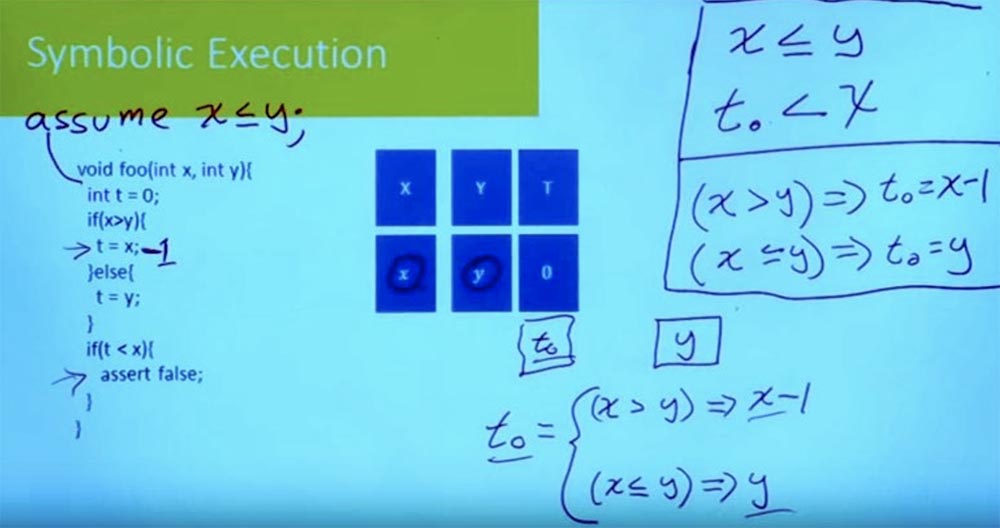 Symbolic Execution
assume x ≤ y;
void foo(int x, int y){
int t = 0;
if(x>y){
t = x; -1
}else{
t = y;
}
if(t < x){
assert false;
}
}
X Y T
x y 0
t₀ y
t₀ = { (x > y) ⇒ x-1
(x ≤ y) ⇒ y
x ≤ y
t₀ < x
(x > y) ⇒ t₀ = x-1
(x ≤ y) ⇒ t₀ = y